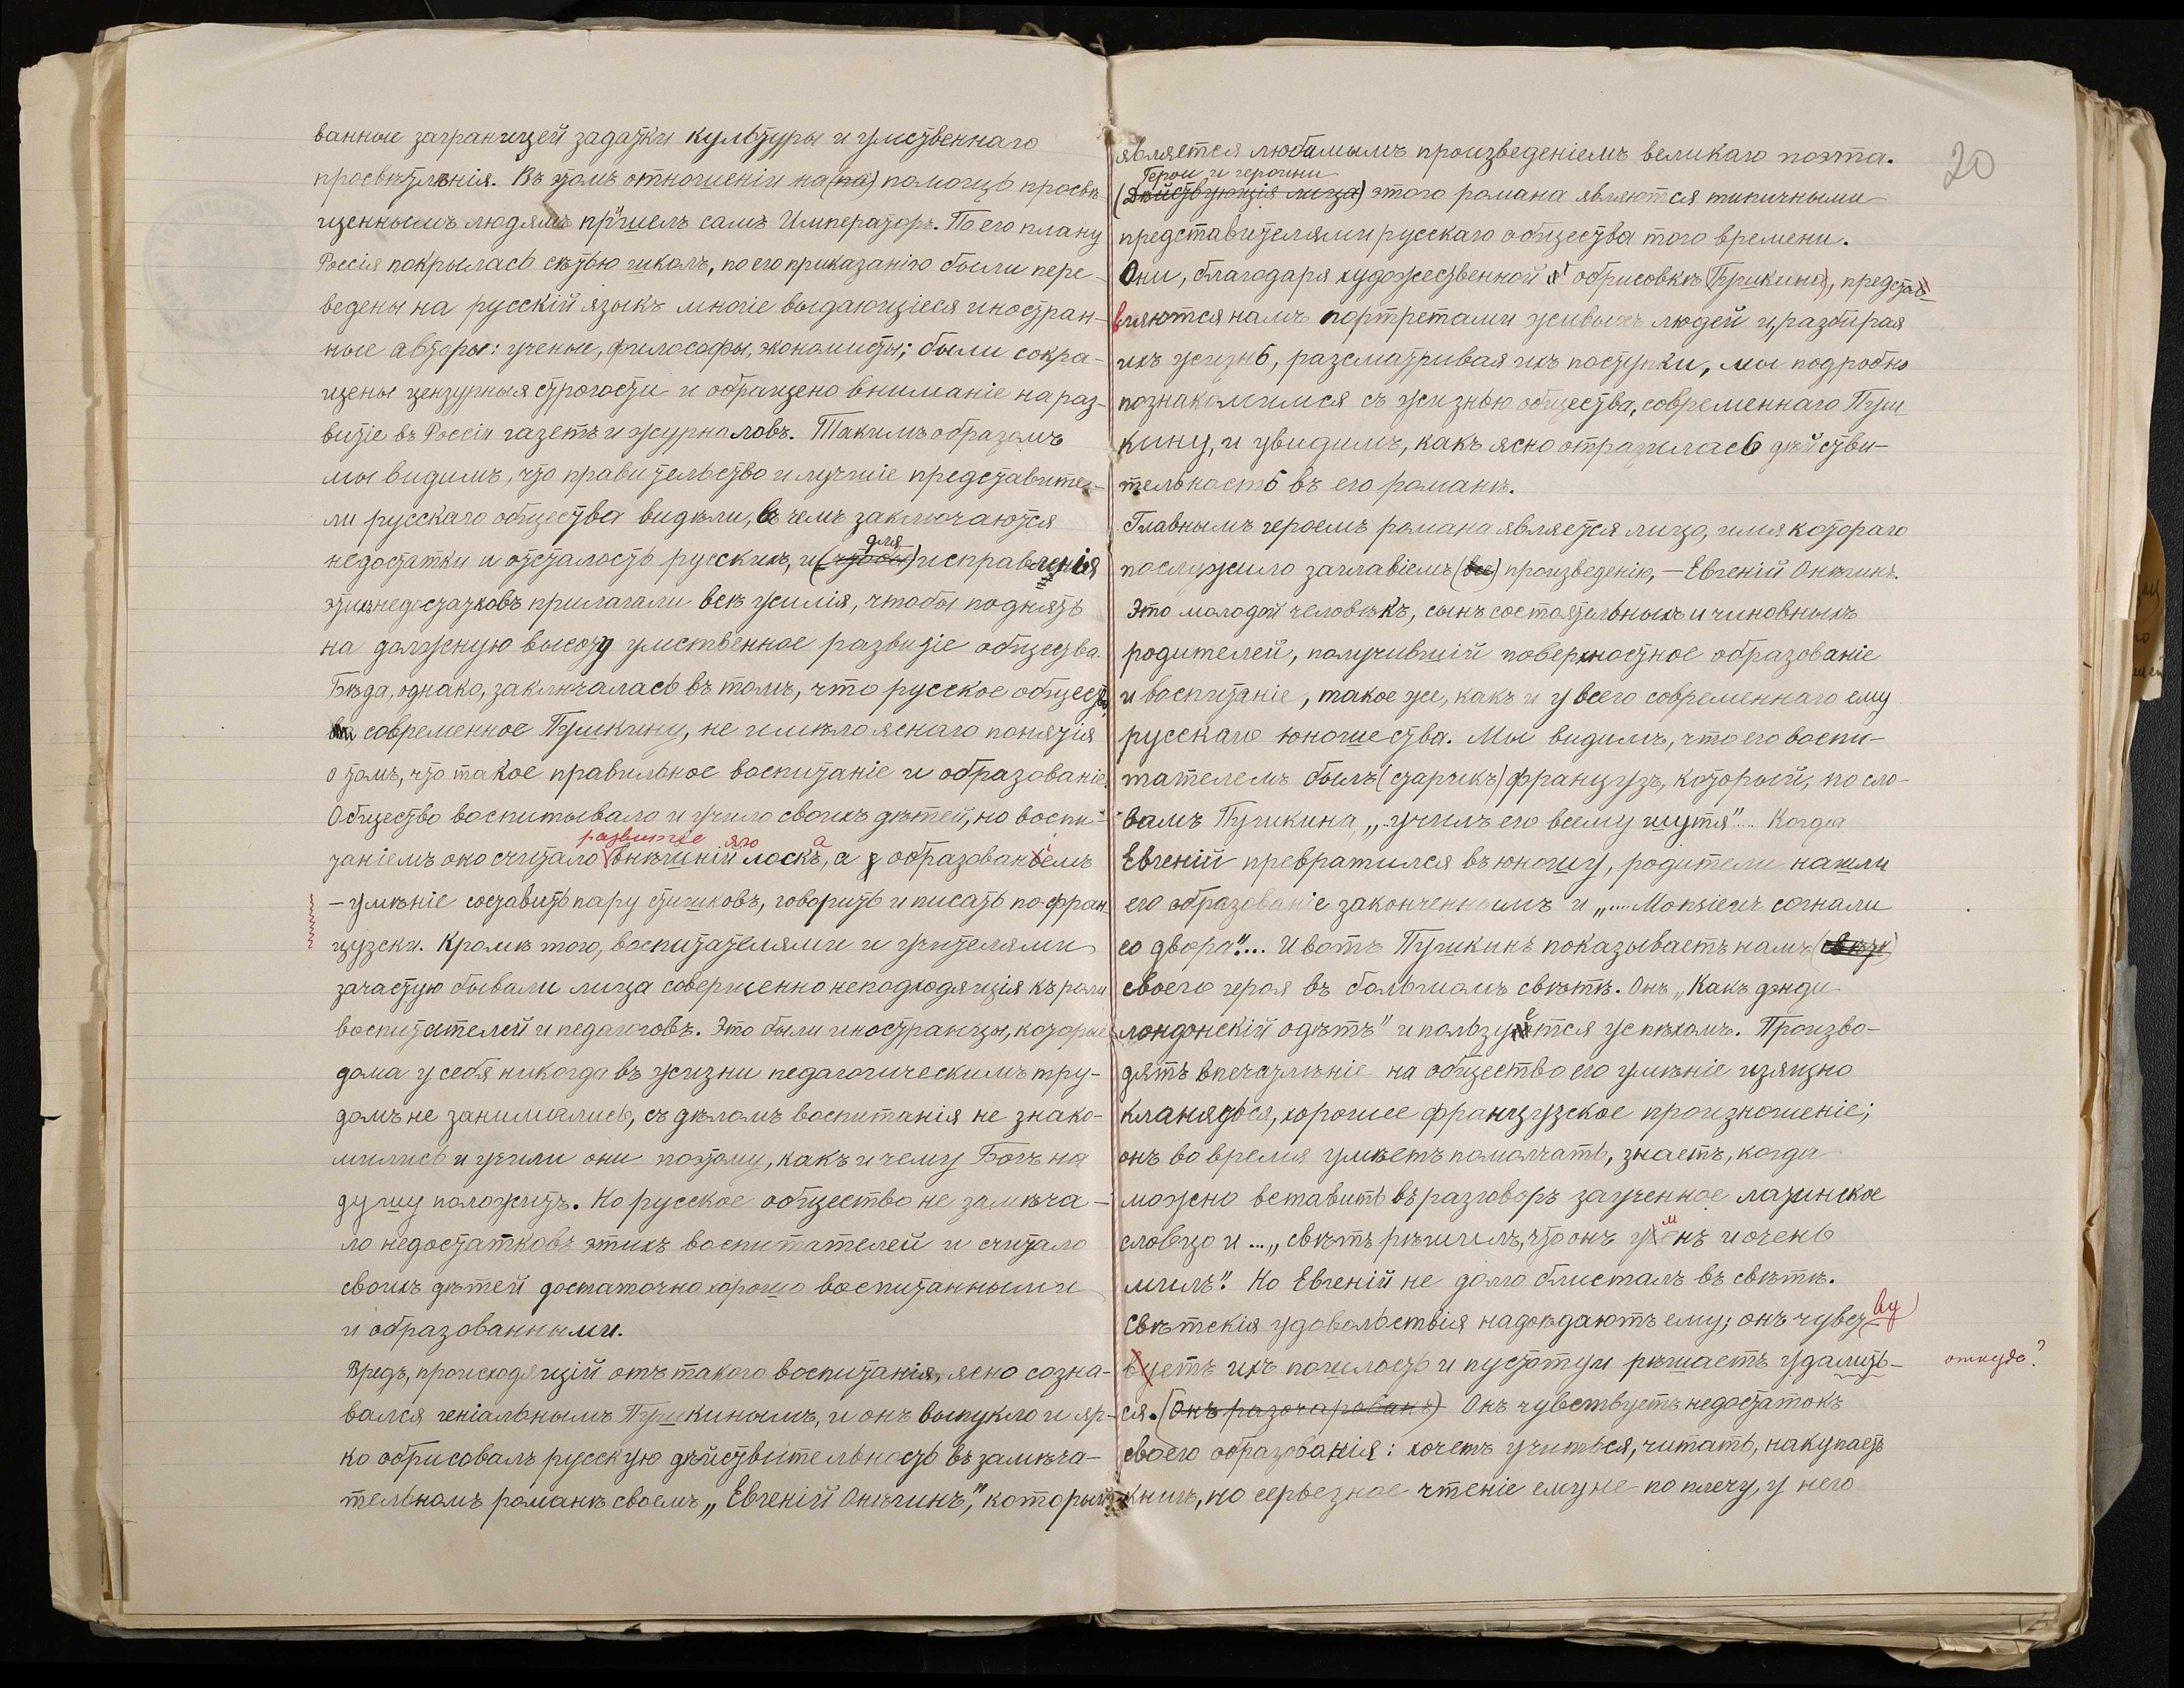 ванные заграницей задатки культуры и умственнаго
просвѣтлѣнія. Въ этомъ отношеніи на (на) помощь просвѣ-
щеннымъ людямъ пришелъ самъ Императоръ. По его плану
Россія покрылась сѣтью школъ, по его приказанію были пере-
ведены на русскій языкъ многіе выдающіеся иностран-
ные авторы: ученые, философы, экономисты; были сокра-
щены цензурныя строгости и обращено вниманіе на раз-
витіе въ Россіи газетъ и журналовъ. Такимъ образомъ
мы видимъ, что правительство и лучшіе представите-
ли русскаго общества видѣли, въ чемъ заключаются
недостатки и отсталость русскихъ, и (чтобы) для исправленія
этихъ недостатковъ прилагали всѣ усилія, чтобы поднять
на должную высоту умственное развитіе общества.
Бѣда, однако, заключалась въ томъ, что русское общество,
современное Пушкину, не имѣло яснаго понятія
о томъ, что такое правильное воспитаніе и образованіе.
Общество воспитывало и учило своихъ дѣтей, но воспи-
развитіе яго а
таніемъ оно считало внѣшній лоскъ, а образованіемъ
– умѣніе составить пару стишковъ, говорить и писать по-фран-
цузски. Кромѣ того, воспитателями и учителями
зачастую бывали лица совершенно неподходящія къ роли
воспитателей и педагоговъ. Это были иностранцы, которые
дома у себя никогда въ жизни педагогическимъ тру-
домъ не занимались, съ дѣломъ воспитанія не знако-
мились и учили они поэтому, какъ и чему Богъ на
душу положитъ. Но русское общество не замѣча-
ло недостатковъ этихъ воспитателей и считало
своихъ дѣтей достаточно хорошо воспитанными
и образованными.
Вредъ, происходящій отъ такого воспитанія, ясно созна-
вался геніальнымъ Пушкинымъ, и онъ выпукло и яр-
ко обрисовалъ русскую дѣйствительность въ замѣча-
тельномъ романѣ своемъ „Евгеній Онѣгинъ", который
20
является любимымъ произведеніемъ великаго поэта.
Герои и героини
(Дѣйствующія лица) этого романа являются типичными
представителями русскаго общества того времени.
Они, благодаря художественной обрисовкѣ (Пушкина), представ-
вляются намъ портретами живыхъ людей и, разбирая
ихъ жизнь, разсматривая ихъ поступки, мы подробно
познакомимся съ жизнью общества, современнаго Пуш-
кину, и увидимъ, какъ ясно отразилась дѣйстви-
тельность въ его романѣ.
Главнымъ героемъ романа является лицо, имя котораго
послужило заглавіемъ (все) произведенію, – Евгеній Онѣгинъ.
Это молодой человѣкъ, сынъ состоятельныхъ и чиновныхъ
родителей, получившій поверхностное образованіе
и воспитаніе, такое же, какъ и у всего современнаго ему
русскаго юношества. Мы видимъ, что его воспи-
тателемъ былъ (старикъ) французъ, который, по сло-
вамъ Пушкина, „..училъ его всему шутя".... Когда
Евгеній превратился въ юношу, родители нашли
его образованіе законченнымъ и „....Monsieur согнали
со двора".... И вотъ Пушкинъ показываетъ намъ
своего героя въ большомъ свѣтѣ. Онъ „Какъ дэнди
лондонскій одѣтъ" и пользуется успѣхомъ. Произво-
дятъ впечатлѣніе на общество его умѣніе изящно
кланяться, хорошее французское произношеніе;
онъ во время умѣетъ помолчать, знаетъ, когда
можно вставить въ разговоръ заученное латинское
словцо и ...„свѣтъ рѣшилъ, что онъ уменъ и очень
милъ". Но Евгеній не долго блисталъ въ свѣтѣ.
Свѣтскія удовольствія надоѣдаютъ ему; онъ чувст-ву
вуетъ ихъ пошлость и пустоту и рѣшаетъ удалить-
откуда?
ся. (Онъ разочарованъ) Онъ чувствуетъ недостатокъ
своего образованія: хочетъ учиться, читать, накупаетъ
книгъ, но серьезное чтеніе ему не по плечу, у него